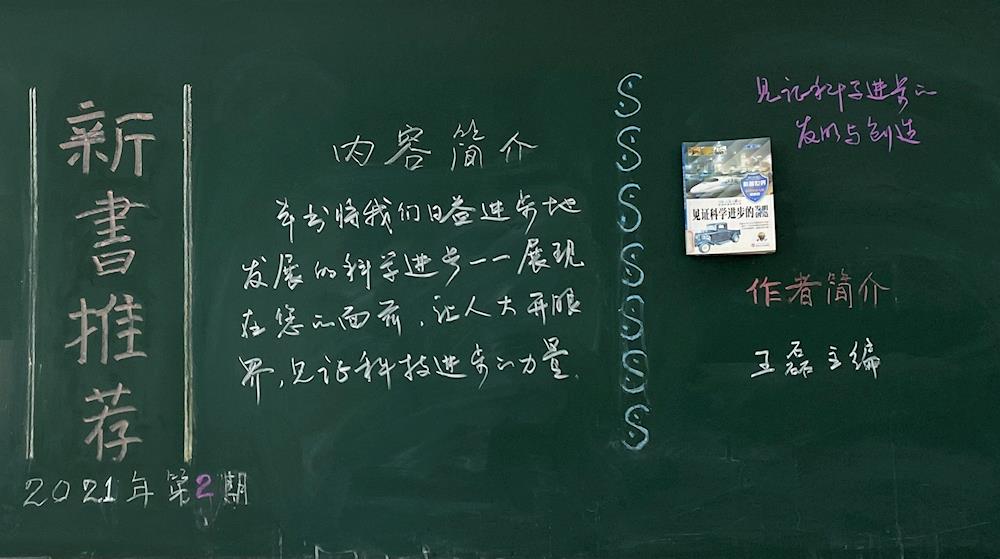 新書推荐
2021年第2期
内容简介
本书将我们日益进步地
发展的科学进步一一展现
在您的面前，让人大开眼
界，见证科技进步的力量.
见证科学进步的
发明与创造
科普世界
见证科学进步的发明与创造
作者简介
王磊主编